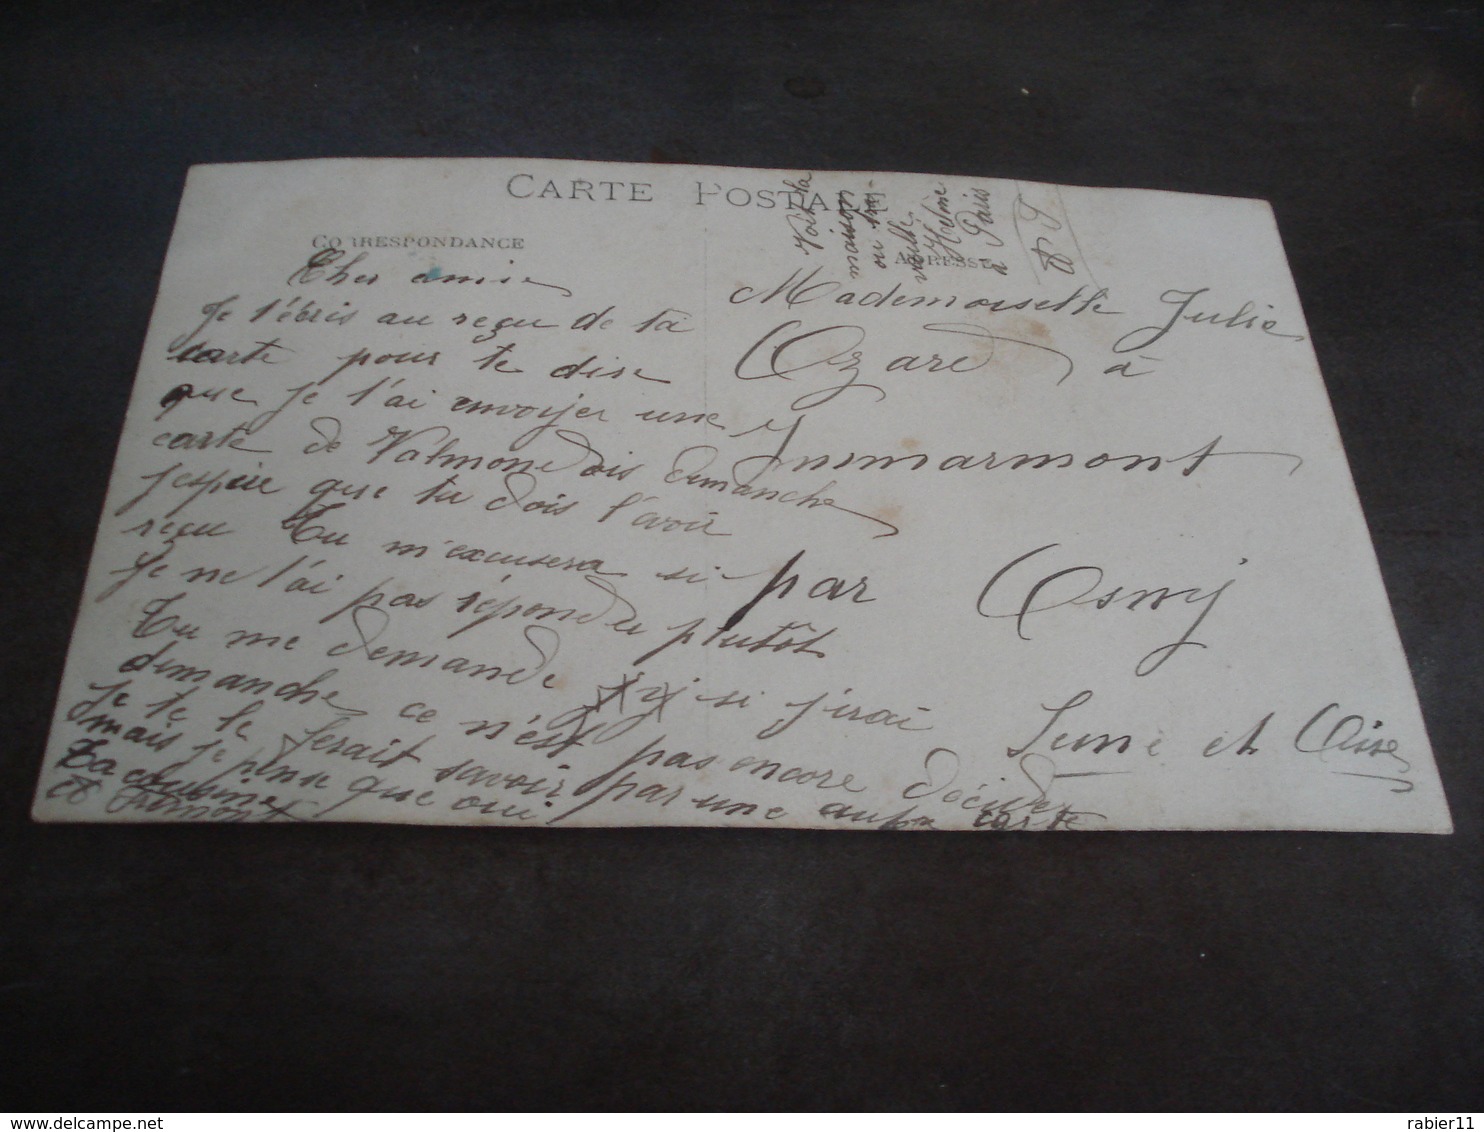 CARTE POSTALE
CORRESPONDANCE
ADRESSE
Voir la
maison
ou tra-
vaille
à Paris
Cher amie
Je t'ébris au reçu de ta
carte pour te dire
que je t'ai envoyer une
carte de Valmondois dimanche
j'espère que tu dois l'avoir
reçu Tu m'excusera si
je ne t'ai pas répondu plutôt
Tu me demande si j'irai
dimanche ce n'est pas encore décider
je te le ferait savoir par une autre carte
mais je pense que oui
Ta cousine
Mademoiselle Julie
Ozaré à
Ommarmont
par Osny
Seine et Oise
rabier11